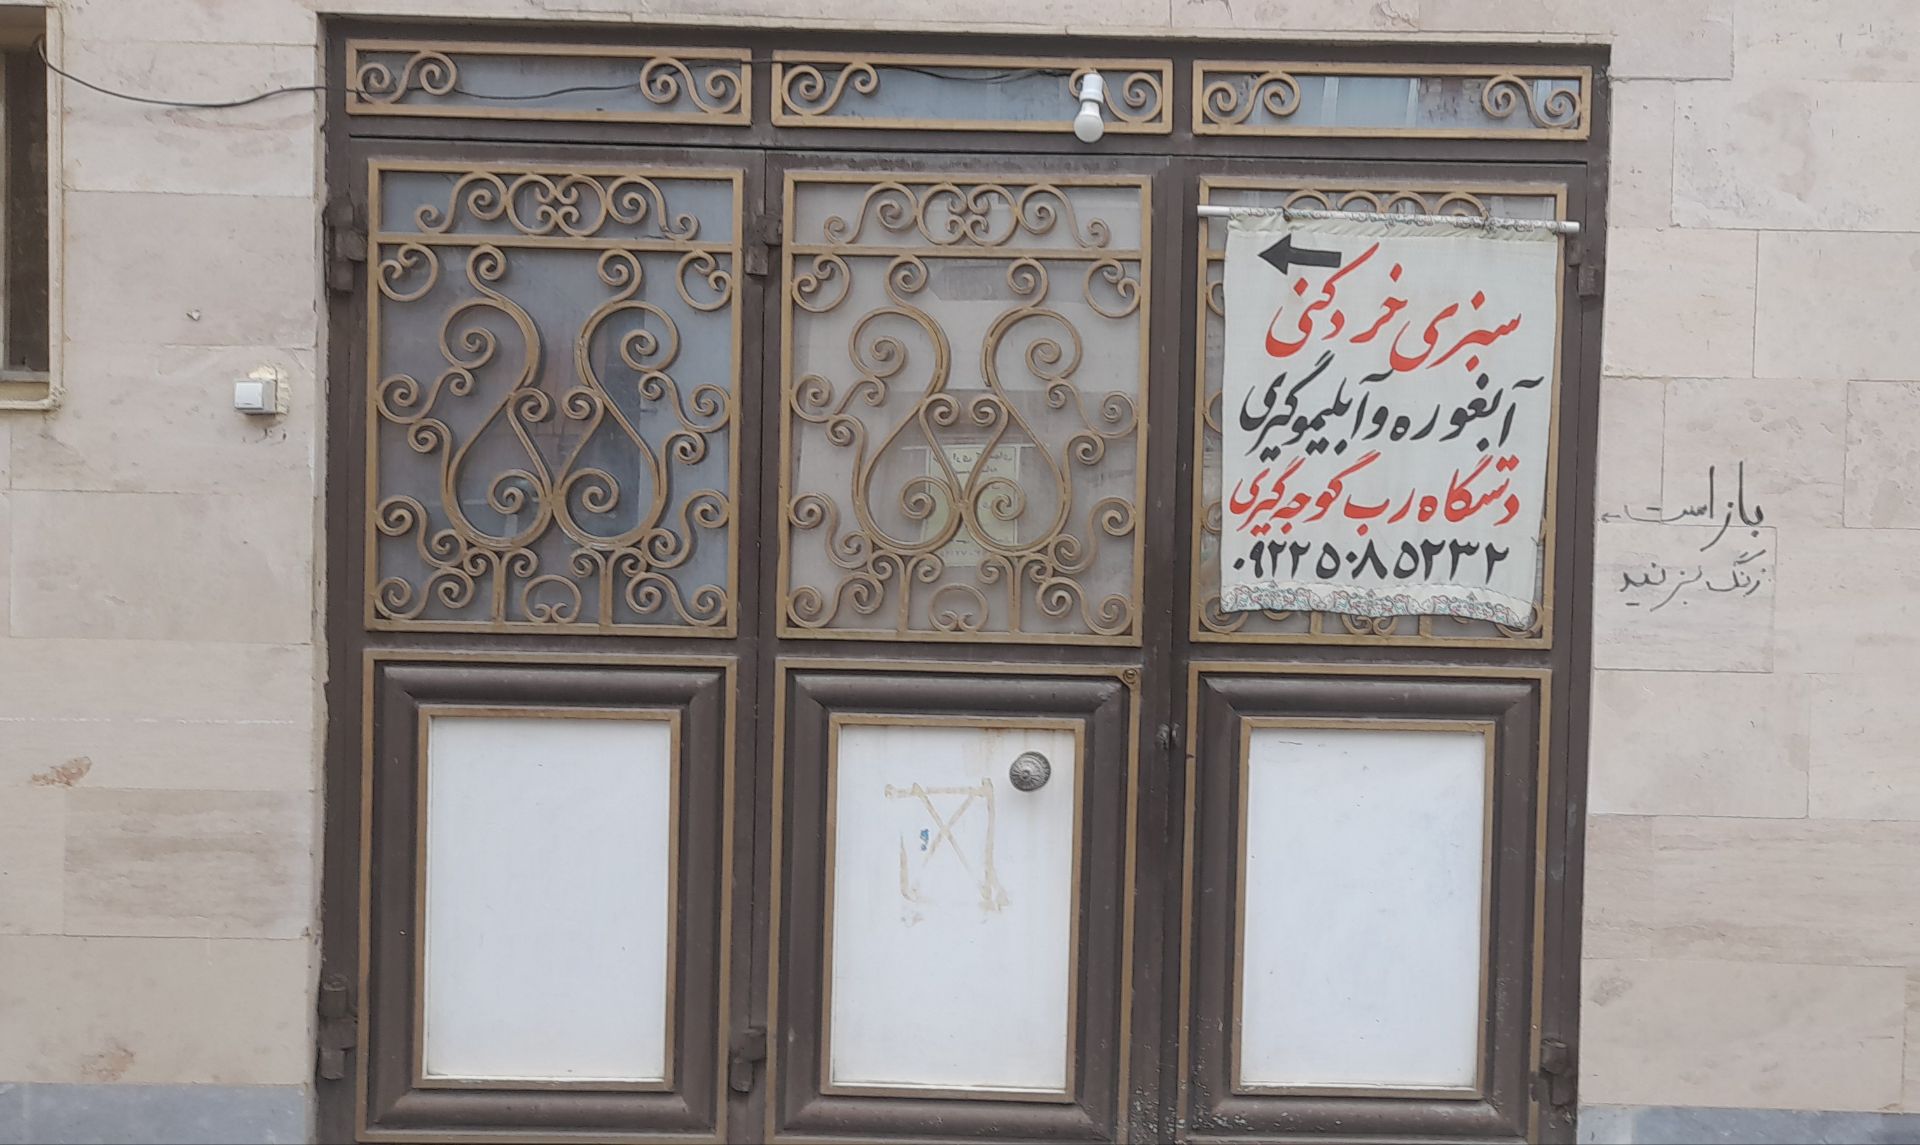 سبزی خردکنی
آبغوره و آبلیموگیری
دستگاه رب گوجه گیری
۰۹۲۲۵۰۸۵۲۳۲
باز است
زنگ بزنید